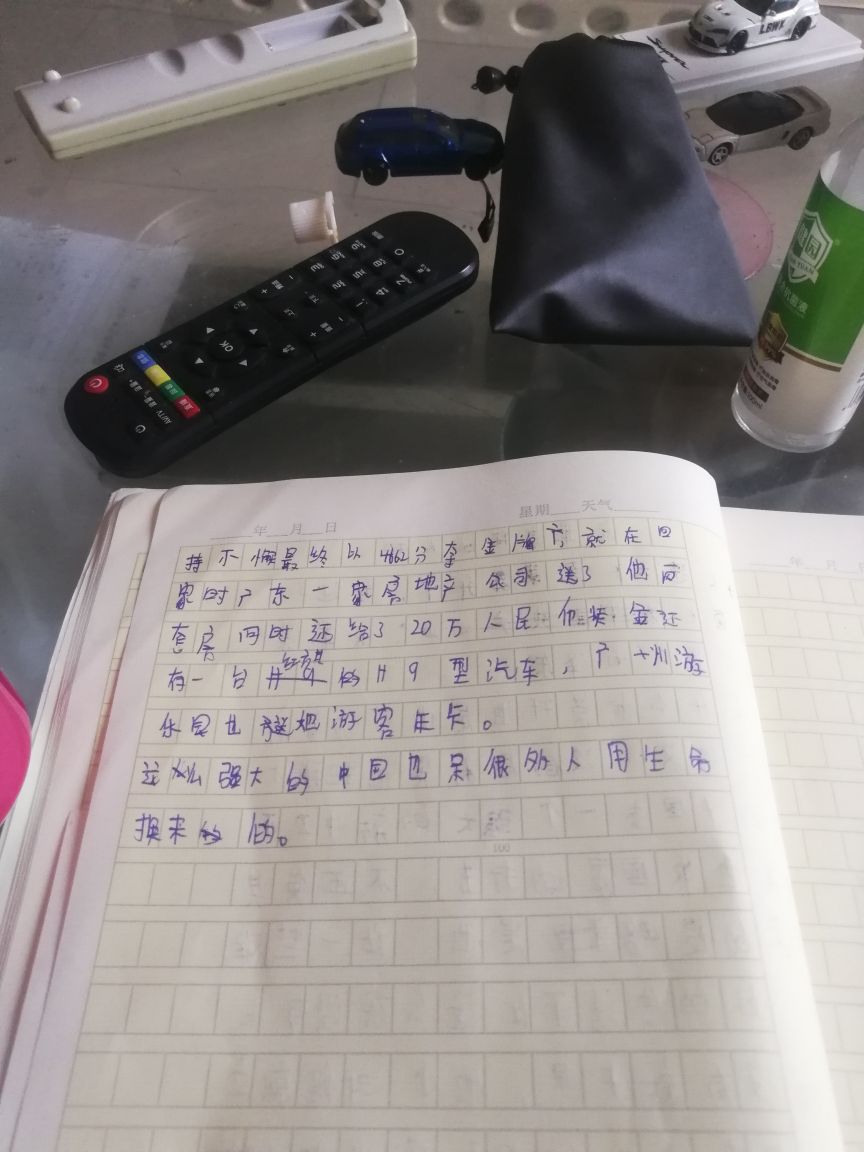 LBWK
Supra
OK
AV/TV
年 月 日
星期 天气
持不懈最终以4662分夺金牌,就在回
家时广东一家房地产公司送了他一
套房同时还给了20万人民币奖金还
有一台红旗的H9型汽车,广州游
乐园也送他游客年卡。
这么强大的中国也是很多人用生命
换来的。
100
年 月 日